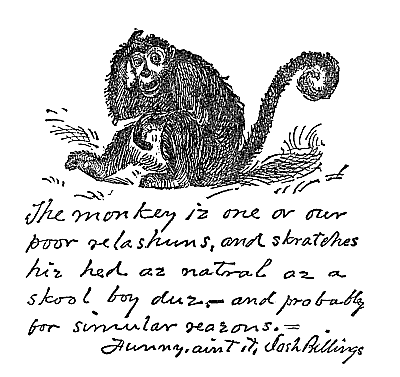 The monkey iz one ov our
poor relashuns, and skratches
hiz hed az natral az a
skool boy duz,— and probably
for simular reazons.=
Funny, aint it, Josh Billings